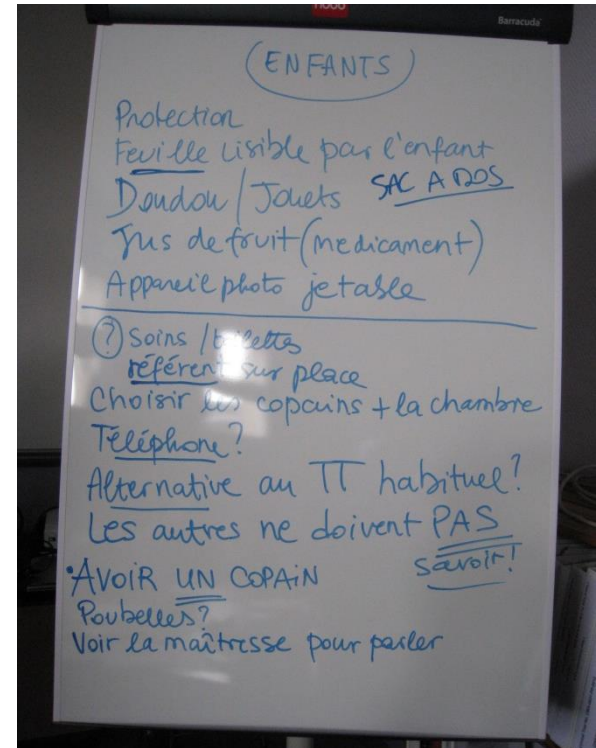 nobo
Barracuda
ENFANTS
Protection
Feuille lisible par l'enfant
Doudou / Jouets SAC A DOS
Jus de fruit (medicament)
Appareil photo jetable
? Soins / toilettes
référent sur place
Choisir les copains + la chambre
Téléphone ?
Alternative au TT habituel ?
Les autres ne doivent PAS
savoir !
• AVOIR UN COPAIN
Poubelles ?
Voir la maîtresse pour parler